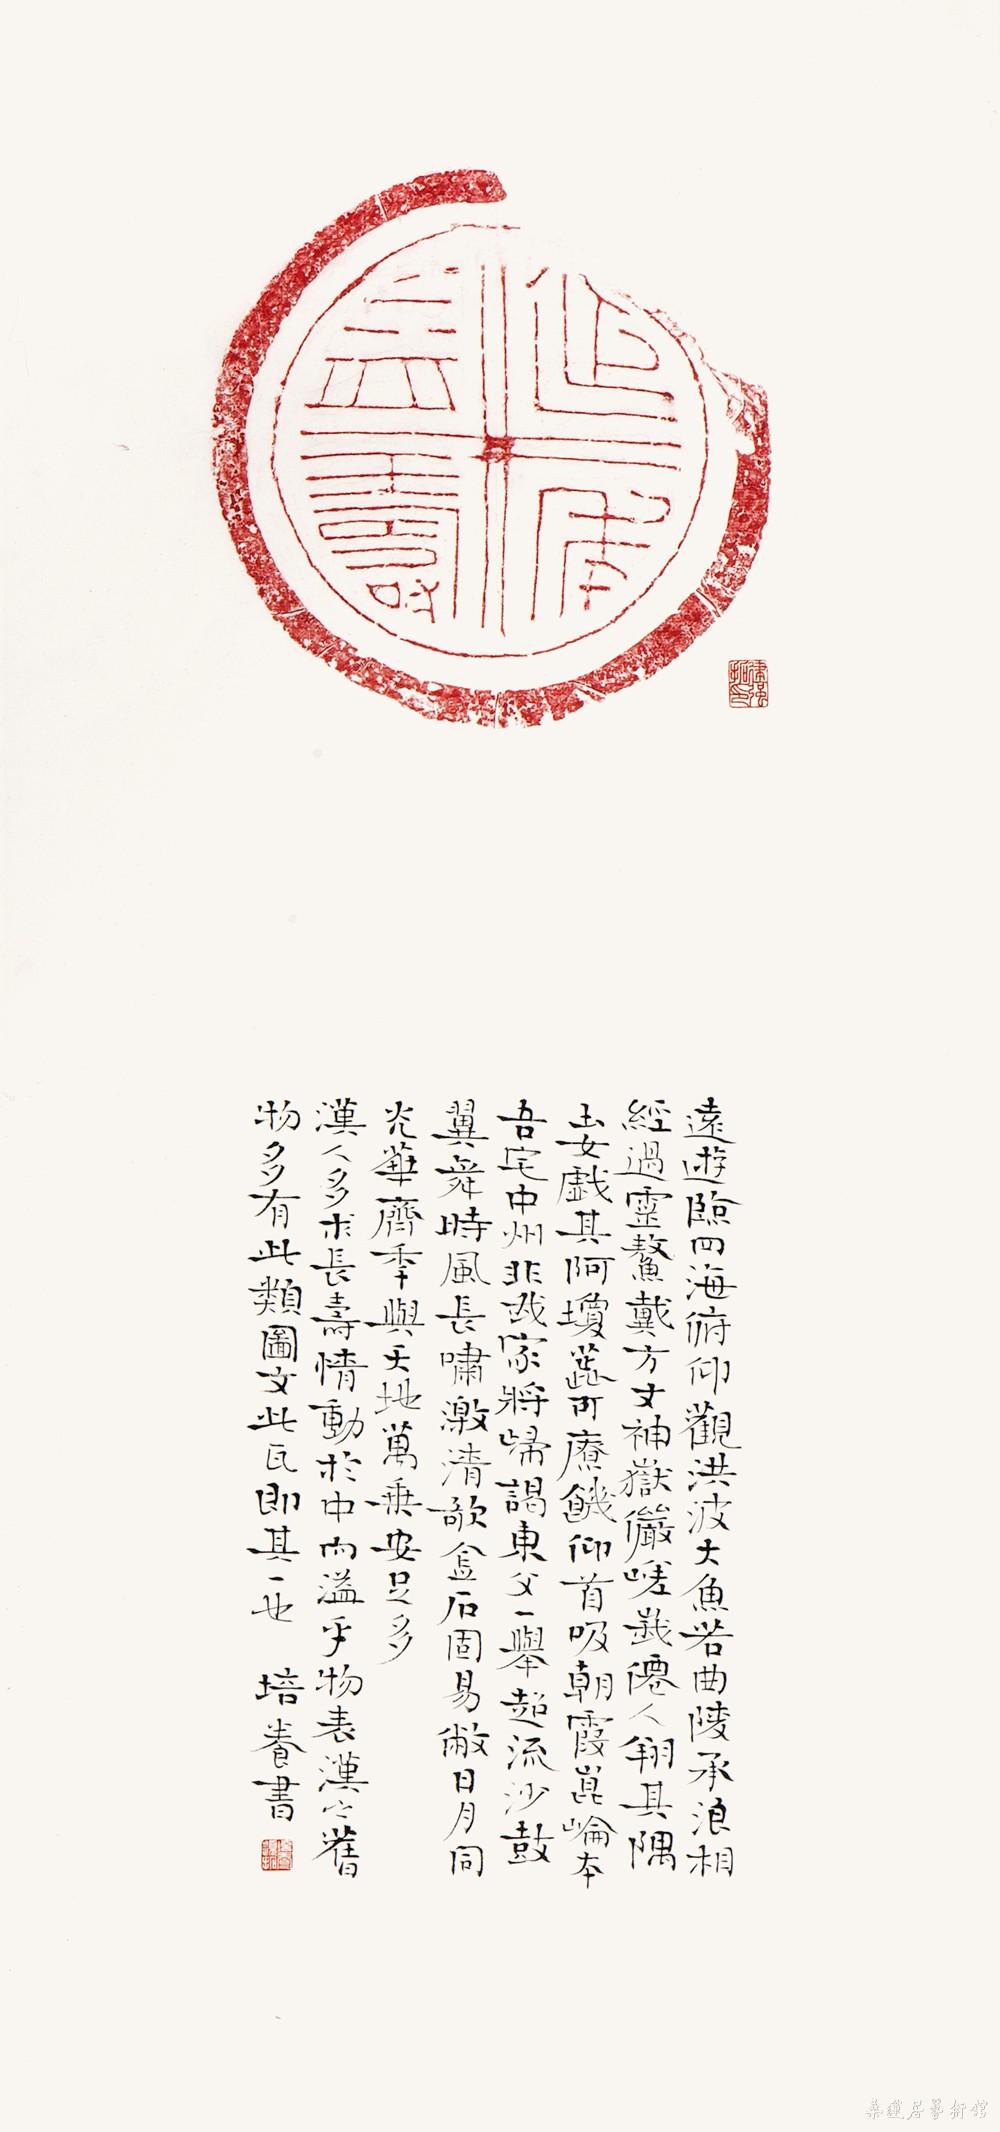 延年
益壽
遠遊臨四海俯仰觀洪波大魚若曲陵承浪相
經過靈鼇戴方丈神嶽儼嵯峩僊人翔其隅
玉女戯其阿瓊蕊可療饑仰首吸朝霞崑崘本
吾宅中州非我家將歸謁東父一舉超流沙鼓
翼舞時風長嘯激清歌金石固易敝日月同
光華齊年與天地萬乗安足多
漢人多求長壽情動於中而溢乎物表漢之舊
物多有此類圖文此瓦即其一也 培養書
桑蓮居藝術館